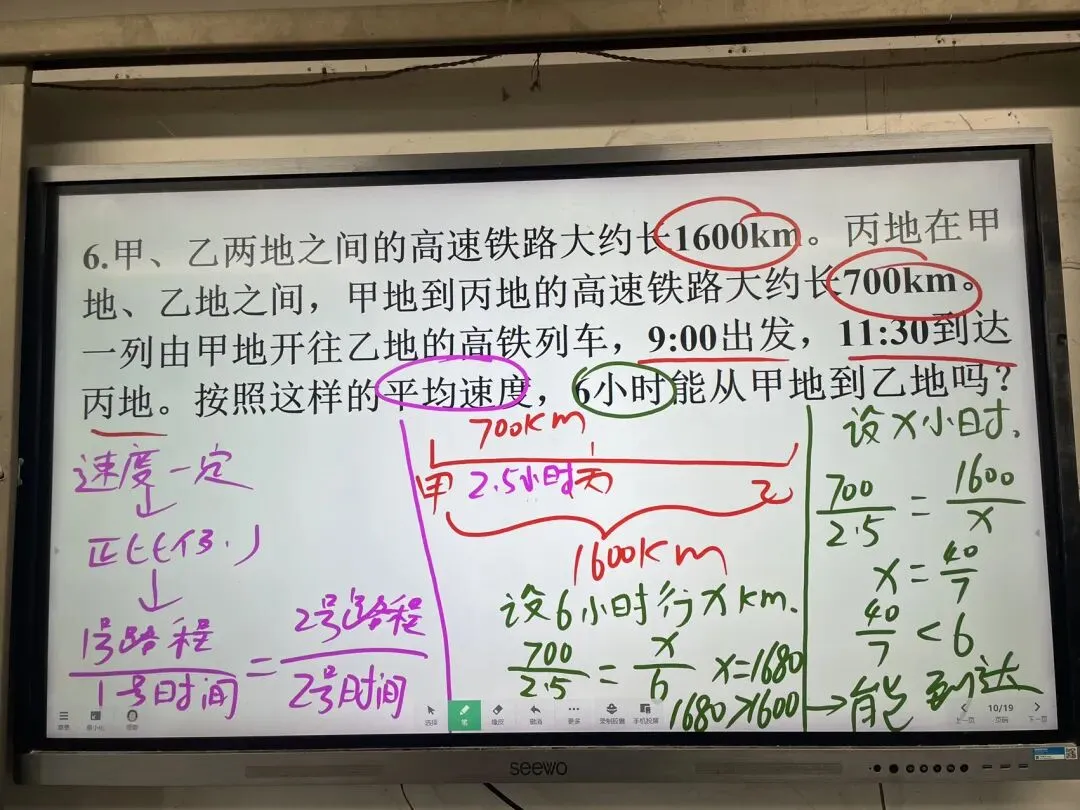 6.甲、乙两地之间的高速铁路大约长1600km。丙地在甲
地、乙地之间，甲地到丙地的高速铁路大约长700km。
一列由甲地开往乙地的高铁列车，9:00出发，11:30到达
丙地。按照这样的平均速度，6小时能从甲地到乙地吗？
速度一定
↓
正比例.
↓
1号路程/1号时间 = 2号路程/2号时间
700km
甲 2.5小时 丙 乙
1600km
设6小时行xkm.
700/2.5 = x/6 x=1680
1680>1600→能到达
设x小时.
700/2.5 = 1600/x
x=40/7
40/7<6
菜单
最小化
选择
笔
橡皮
撤消
更多
录制胶囊
手机投屏
上一页
10/19
页码
下一页
seewo